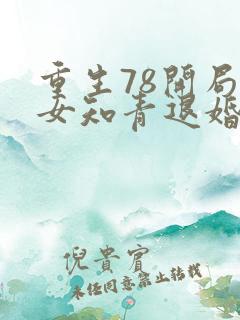 重生78開局
女知青退婚
倪貴賓
未经同意禁止转载